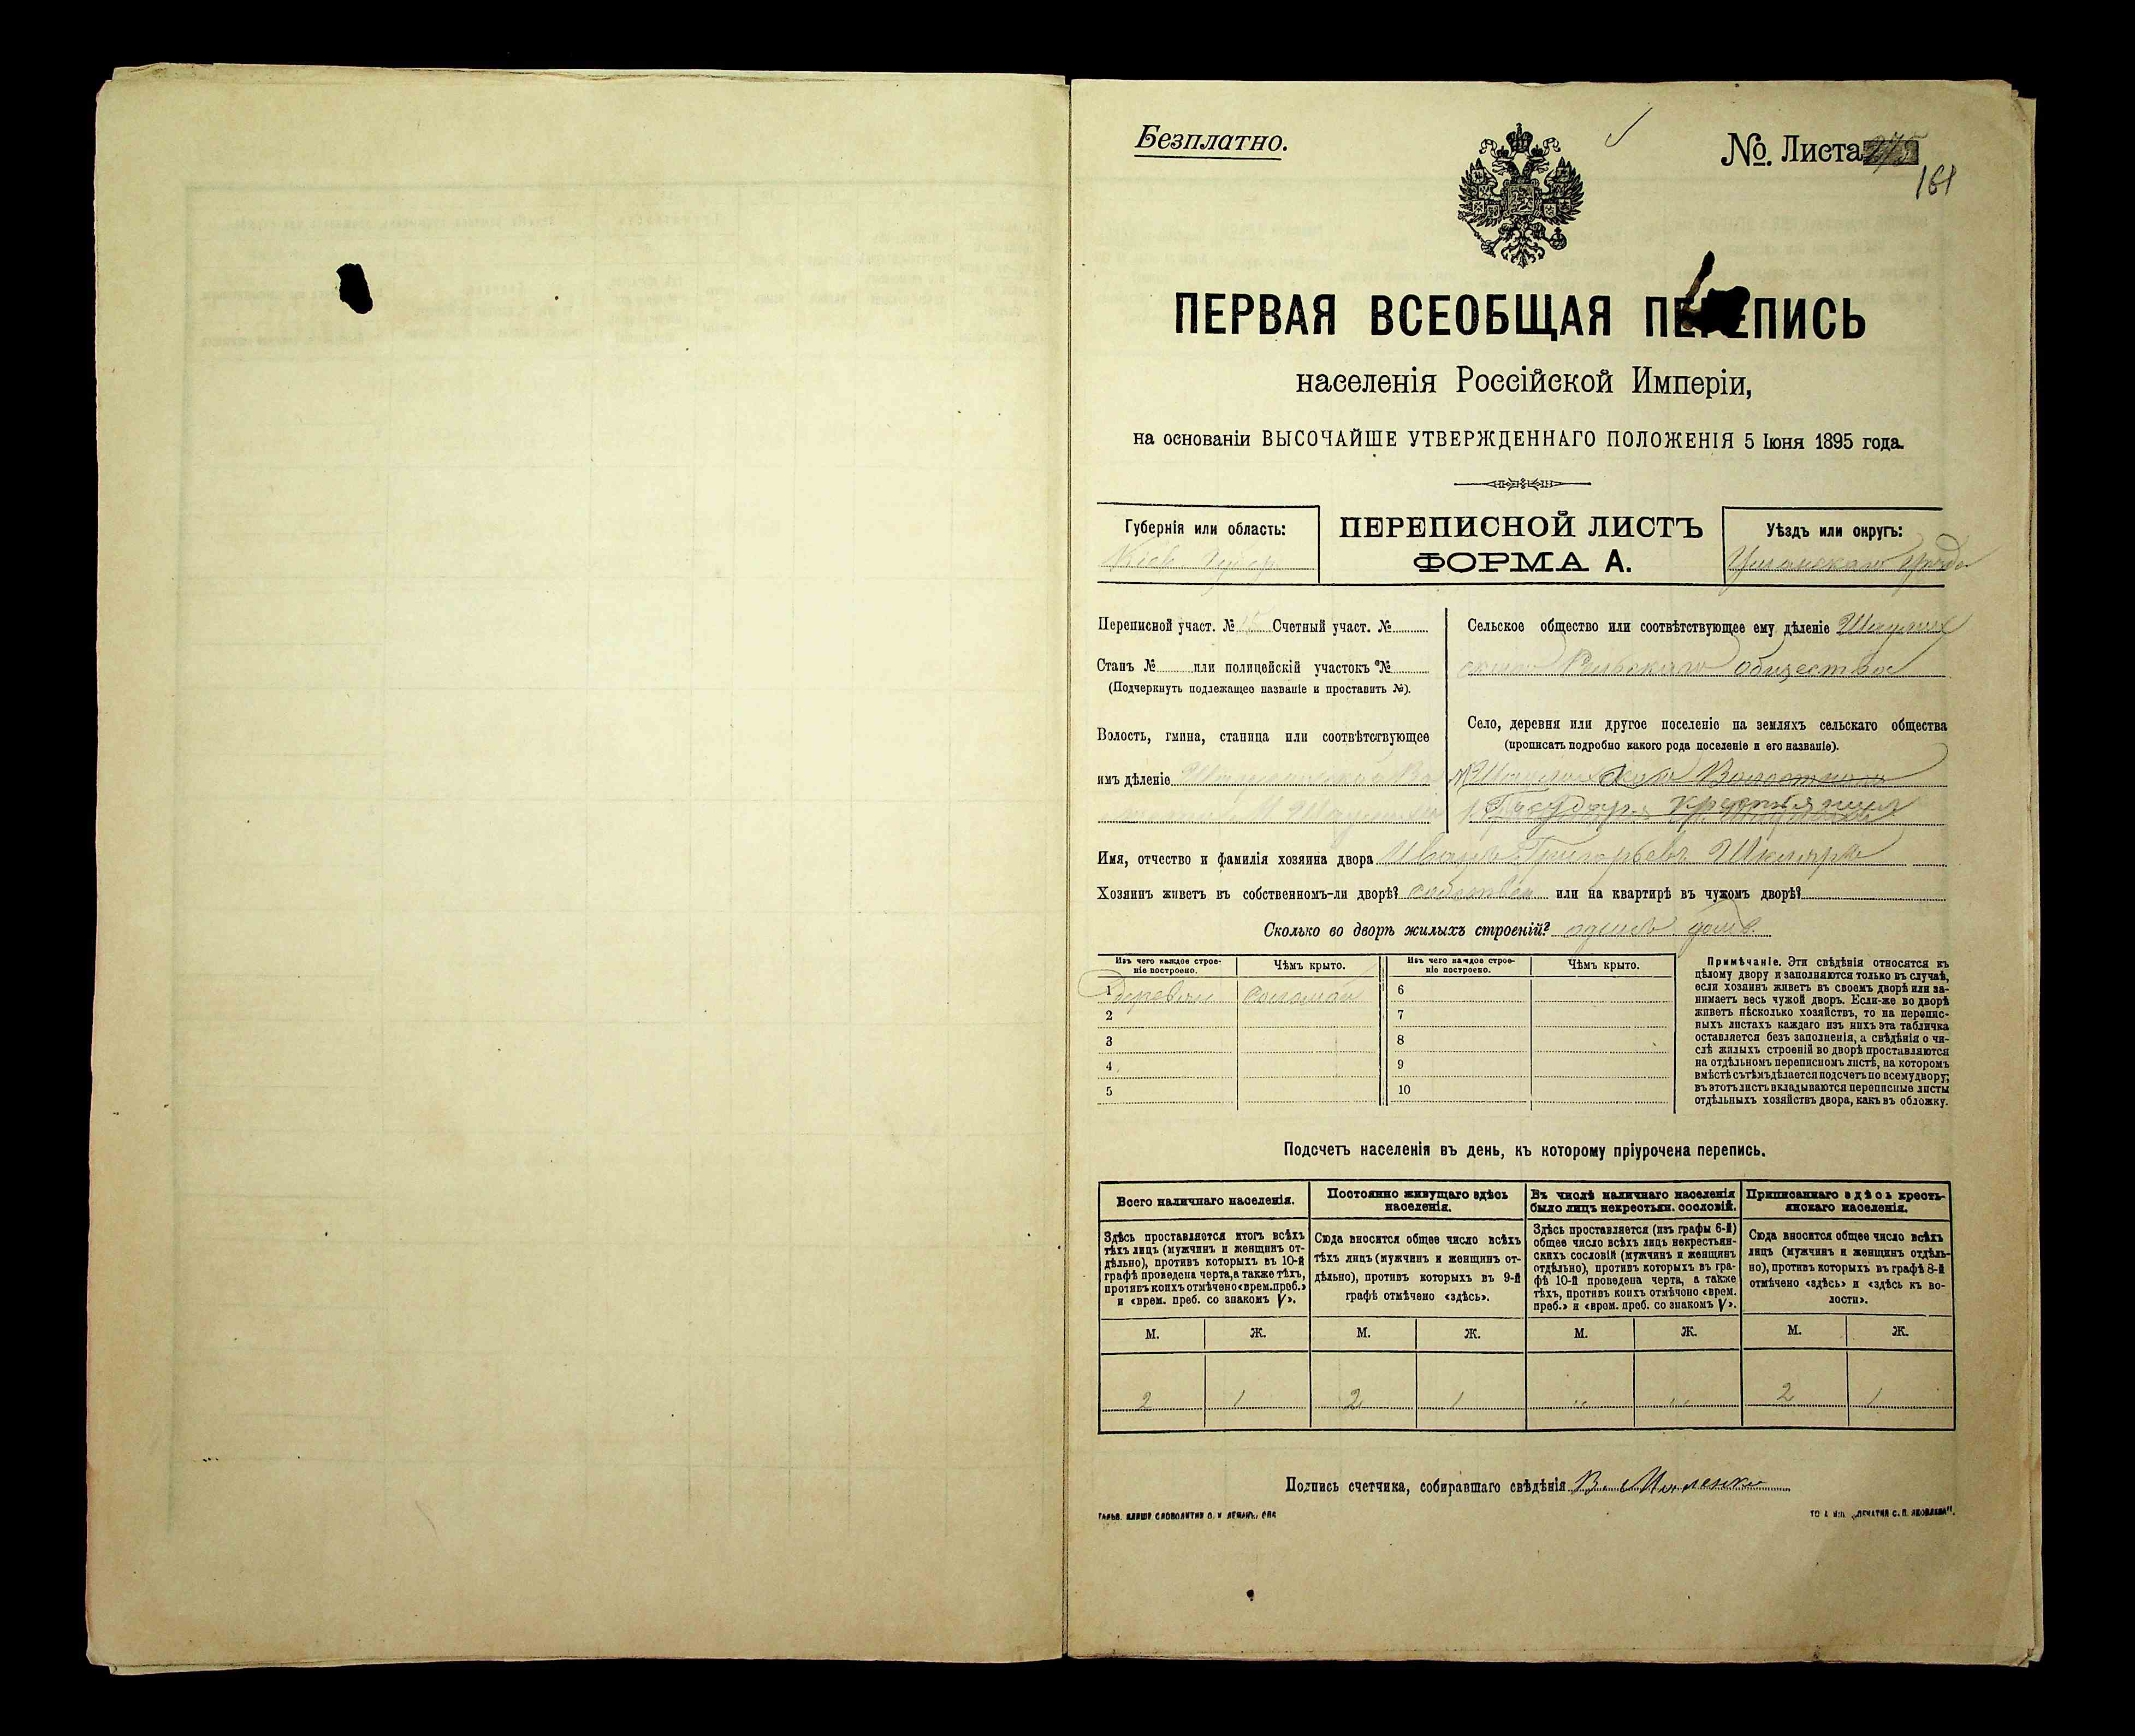 Безплатно.
№. Листа 275
161
ПЕРВАЯ ВСЕОБЩАЯ ПЕРЕПИСЬ
населенія Россійской Имперіи,
на основаніи ВЫСОЧАЙШЕ УТВЕРЖДЕННАГО ПОЛОЖЕНІЯ 5 Іюня 1895 года.
Губернія или область:
Кіев. Губер.
ПЕРЕПИСНОЙ ЛИСТЪ
ФОРМА А.
Уѣздъ или округъ:
Уманскаго Уѣзда
Переписной участ. № Счетный участ. №
Станъ № или полицейскій участокъ №
(Подчеркнуть подлежащее названіе и проставить №).
Волость, гмина, станица или соотвѣтствующее
имъ дѣленіе
Сельское общество или соотвѣтствующее ему дѣленіе
Сельскаго общества
Село, деревня или другое поселеніе на земляхъ сельскаго общества
(прописать подробно какого рода поселеніе и его названіе).
Имя, отчество и фамилія хозяина двора Иванъ Григорьевъ Шкляръ
Хозяинъ живетъ въ собственномъ-ли дворѣ? собствен или на квартирѣ въ чужомъ дворѣ?
Сколько во дворѣ жилыхъ строеній? одинъ домъ.
Изъ чего каждое строе-
ніе построено.
Чѣмъ крыто.
Изъ чего каждое строе-
ніе построено.
Чѣмъ крыто.
1 деревян соломой 6
2 7
3 8
4 9
5 10
Примѣчаніе. Эти свѣдѣнія относятся къ
цѣлому двору и заполняются только въ случаѣ,
если хозяинъ живетъ въ своемъ дворѣ или за-
нимаетъ весь чужой дворъ. Если-же во дворѣ
живетъ нѣсколько хозяйствъ, то на перепис-
ныхъ листахъ каждаго изъ нихъ эта табличка
оставляется безъ заполненія, а свѣдѣнія о чи-
слѣ жилыхъ строеній во дворѣ проставляются
на отдѣльномъ переписномъ листѣ, на которомъ
вмѣстѣ съ тѣмъ дѣлается подсчетъ по всему двору;
въ этотъ листъ вкладываются переписные листы
отдѣльныхъ хозяйствъ двора, какъ въ обложку.
Подсчетъ населенія въ день, къ которому пріурочена перепись.
Всего наличнаго населенія.
Здѣсь проставляется итогъ всѣхъ
тѣхъ лицъ (мужчинъ и женщинъ от-
дѣльно), противъ которыхъ въ 10-й
графѣ проведена черта, а также тѣхъ,
противъ коихъ отмѣчено «врем. преб.»
и «врем. преб. со знакомъ V».
Постоянно живущаго здѣсь
населенія.
Сюда вносится общее число всѣхъ
тѣхъ лицъ (мужчинъ и женщинъ от-
дѣльно), противъ которыхъ въ 9-й
графѣ отмѣчено «здѣсь».
Въ числѣ наличнаго населенія
было лицъ некрестьян. сословій.
Здѣсь проставляется (изъ графы 6-й)
общее число всѣхъ лицъ некрестьян-
скихъ сословій (мужчинъ и женщинъ
отдѣльно), противъ которыхъ въ гра-
фѣ 10-й проведена черта, а также
тѣхъ, противъ коихъ отмѣчено «врем.
преб.» и «врем. преб. со знакомъ V».
Приписаннаго здѣсь кресть-
янскаго населенія.
Сюда вносится общее число всѣхъ
лицъ (мужчинъ и женщинъ отдѣль-
но), противъ которыхъ въ графѣ 8-й
отмѣчено «здѣсь» и «здѣсь къ во-
лости».
М. Ж. М. Ж. М. Ж. М. Ж.
2 1 2 1 " " 2 1
Подпись счетчика, собиравшаго свѣдѣнія